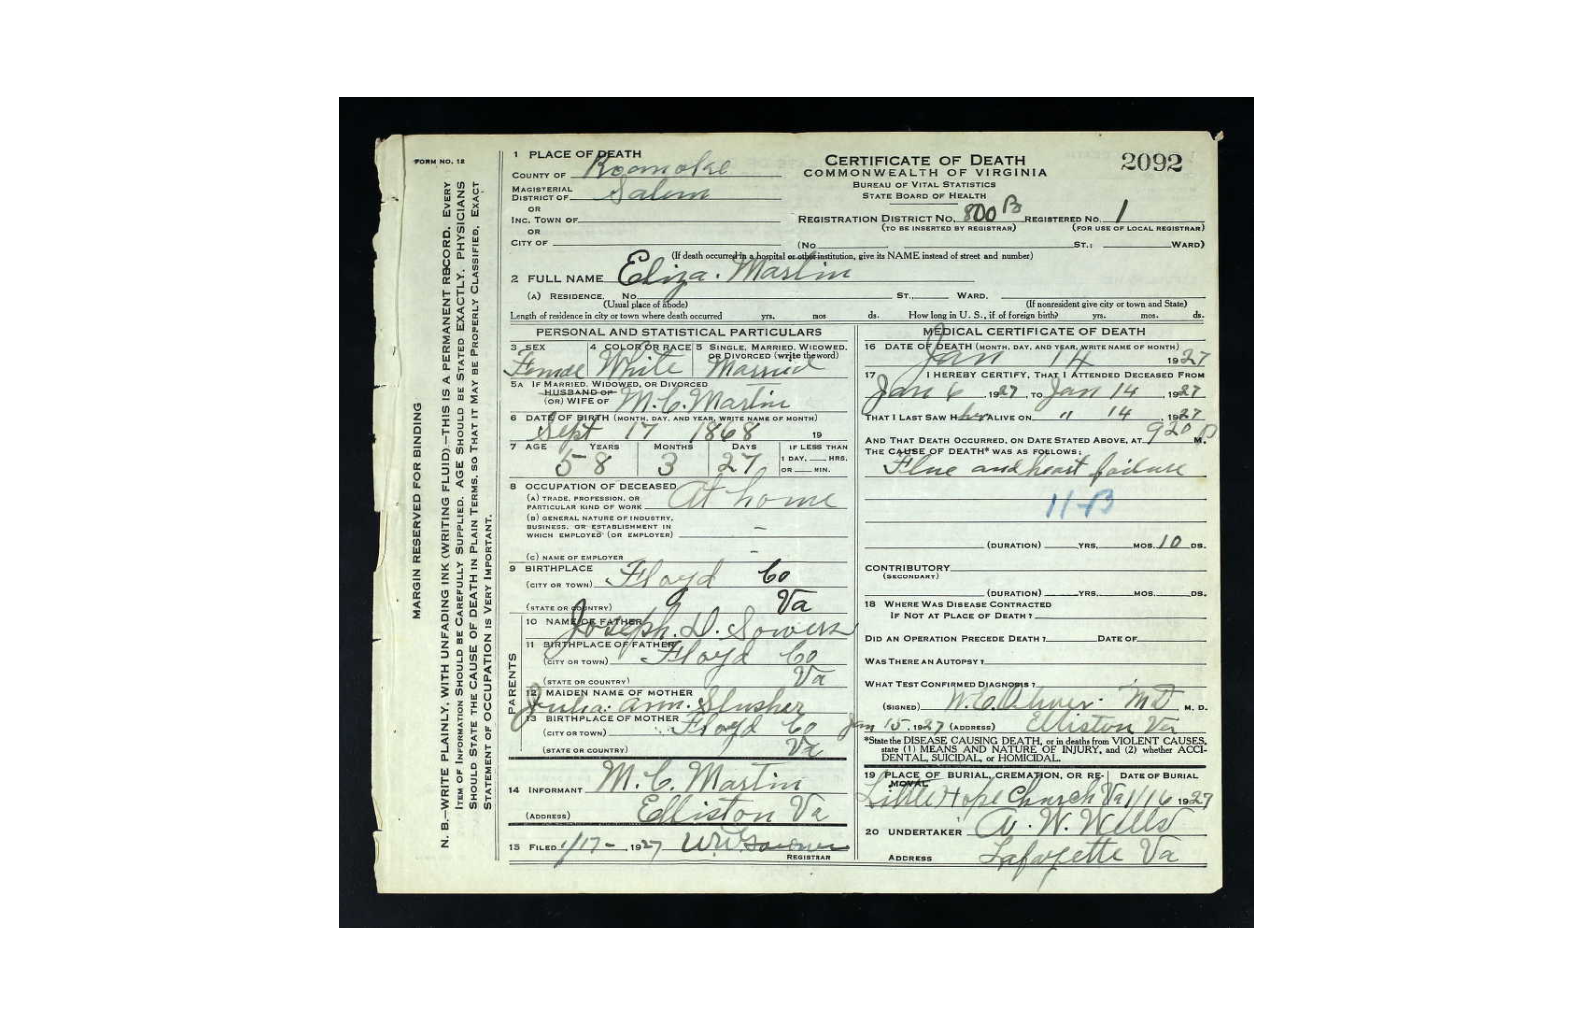 FORM NO. 12
MARGIN RESERVED FOR BINDING
N. B.—WRITE PLAINLY, WITH UNFADING INK (WRITING FLUID)—THIS IS A PERMANENT RECORD. EVERY
ITEM OF INFORMATION SHOULD BE CAREFULLY SUPPLIED. AGE SHOULD BE STATED EXACTLY. PHYSICIANS
SHOULD STATE THE CAUSE OF DEATH IN PLAIN TERMS, SO THAT IT MAY BE PROPERLY CLASSIFIED. EXACT
STATEMENT OF OCCUPATION IS VERY IMPORTANT.
1 PLACE OF DEATH
COUNTY OF Roanoke
MAGISTERIAL
DISTRICT OF Salem
OR
INC. TOWN OF
OR
CITY OF
CERTIFICATE OF DEATH
COMMONWEALTH OF VIRGINIA
BUREAU OF VITAL STATISTICS
STATE BOARD OF HEALTH
2092
REGISTRATION DISTRICT NO. 800 B REGISTERED NO. 1
(TO BE INSERTED BY REGISTRAR) (FOR USE OF LOCAL REGISTRAR)
(NO ST.; WARD)
(If death occurred in a hospital or other institution, give its NAME instead of street and number)
2 FULL NAME Eliza. Martin
(A) RESIDENCE. NO. ST. WARD.
(Usual place of abode) (If nonresident give city or town and State)
Length of residence in city or town where death occurred yrs. mos ds. How long in U. S., if of foreign birth? yrs. mos. ds.
PERSONAL AND STATISTICAL PARTICULARS
3 SEX 4 COLOR OR RACE 5 SINGLE, MARRIED, WIDOWED,
OR DIVORCED (write the word)
Female White Married
5A IF MARRIED, WIDOWED, OR DIVORCED
HUSBAND OF
(OR) WIFE OF M.C. Martin
6 DATE OF BIRTH (MONTH, DAY, AND YEAR, WRITE NAME OF MONTH)
Sept 17 1868 19
7 AGE YEARS MONTHS DAYS IF LESS THAN
1 DAY, HRS.
OR MIN.
58 3 27
8 OCCUPATION OF DECEASED At home
(A) TRADE, PROFESSION, OR
PARTICULAR KIND OF WORK
(B) GENERAL NATURE OF INDUSTRY,
BUSINESS, OR ESTABLISHMENT IN
WHICH EMPLOYED (OR EMPLOYER) –
(C) NAME OF EMPLOYER –
9 BIRTHPLACE
(CITY OR TOWN) Floyd Co
(STATE OR COUNTRY) Va
PARENTS
10 NAME OF FATHER Joseph. D. Sowers
11 BIRTHPLACE OF FATHER
(CITY OR TOWN) Floyd Co
(STATE OR COUNTRY) Va
12 MAIDEN NAME OF MOTHER
Julia. Ann. Slusher
13 BIRTHPLACE OF MOTHER
(CITY OR TOWN) Floyd Co
(STATE OR COUNTRY) Va
14 INFORMANT M. C. Martin
(ADDRESS) Elliston Va
15 FILED 1/17- 1927
REGISTRAR
MEDICAL CERTIFICATE OF DEATH
16 DATE OF DEATH (MONTH, DAY, AND YEAR, WRITE NAME OF MONTH)
Jan 14 1927
17 I HEREBY CERTIFY, THAT I ATTENDED DECEASED FROM
Jan 6, 1927, TO Jan 14 1927
THAT I LAST SAW H er ALIVE ON " 14 1927
AND THAT DEATH OCCURRED, ON DATE STATED ABOVE, AT 920 P M.
THE CAUSE OF DEATH* WAS AS FOLLOWS:
Flue and heart failure
11-B
(DURATION) YRS. MOS. 10 DS.
CONTRIBUTORY
(SECONDARY)
(DURATION) YRS. MOS. DS.
18 WHERE WAS DISEASE CONTRACTED
IF NOT AT PLACE OF DEATH?
DID AN OPERATION PRECEDE DEATH? DATE OF
WAS THERE AN AUTOPSY?
WHAT TEST CONFIRMED DIAGNOSIS?
(SIGNED) W. C. Oliver. MD M. D.
Jan 15, 1927 (ADDRESS) Elliston Va
*State the DISEASE CAUSING DEATH, or in deaths from VIOLENT CAUSES,
state (1) MEANS AND NATURE OF INJURY, and (2) whether ACCI-
DENTAL, SUICIDAL, or HOMICIDAL.
19 PLACE OF BURIAL, CREMATION, OR RE- DATE OF BURIAL
MOVAL
Little Hope Church Va 1/16 1927
20 UNDERTAKER A. W. Wells
ADDRESS Lafayette Va